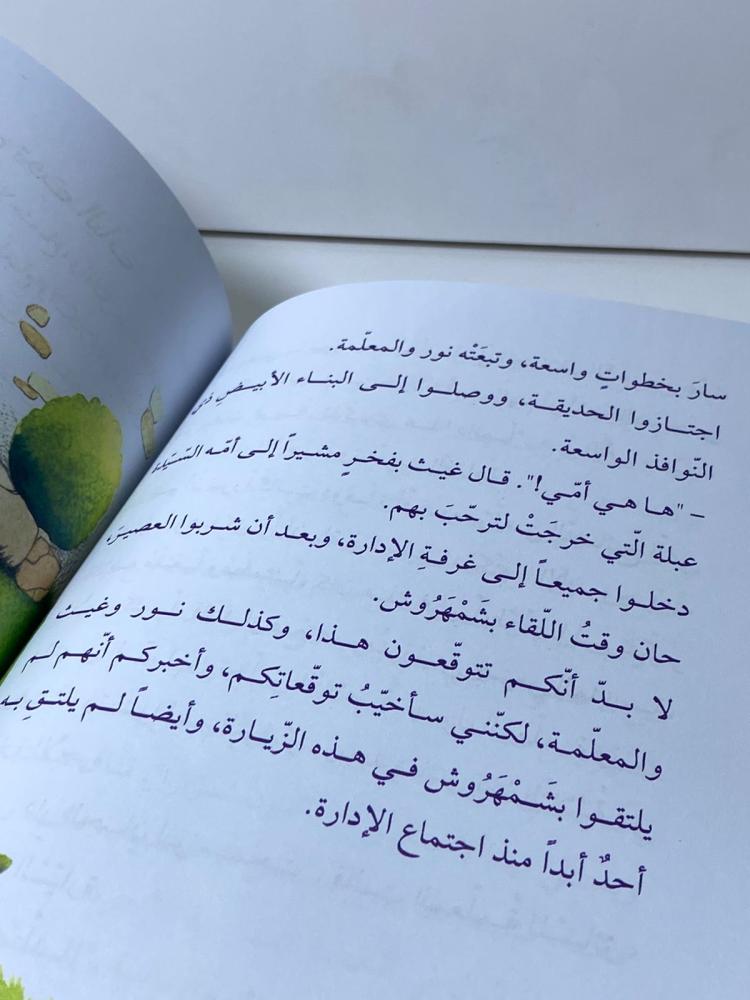 سارَ بخطواتٍ واسعة، وتبعَتْه نور والمعلّمة.
اجتـازوا الحديقـة، ووصلـوا إلـى البنـاء الأبيـضِ ذي
النّوافذ الواسعة.
– "هـا هـي أمّـي!". قـال غيـث بفخـرٍ مشيـراً إلـى أمّـه السّيّدة
عبلة الّتي خرجَتْ لترحّبَ بهم.
دخلـوا جميعـاً إلـى غرفـةِ الإدارة، وبعـد أن شـربوا العصيـرَ،
حان وقتُ اللّقاء بشَمْهَرُوش.
لا بـدّ أنّكـم تتوقّعـون هـذا، وكذلـك نـور وغيـث
والمعلّمـة، لكنّنـي سـأخيّبُ توقّعاتِكـم، وأخبركـم أنّهـم لـم
يلتقـوا بشَـمْهَرُوش فـي هـذه الزّيـارة، وأيضـاً لـم يلتـقِ بـه
أحدٌ أبداً منذ اجتماع الإدارة.